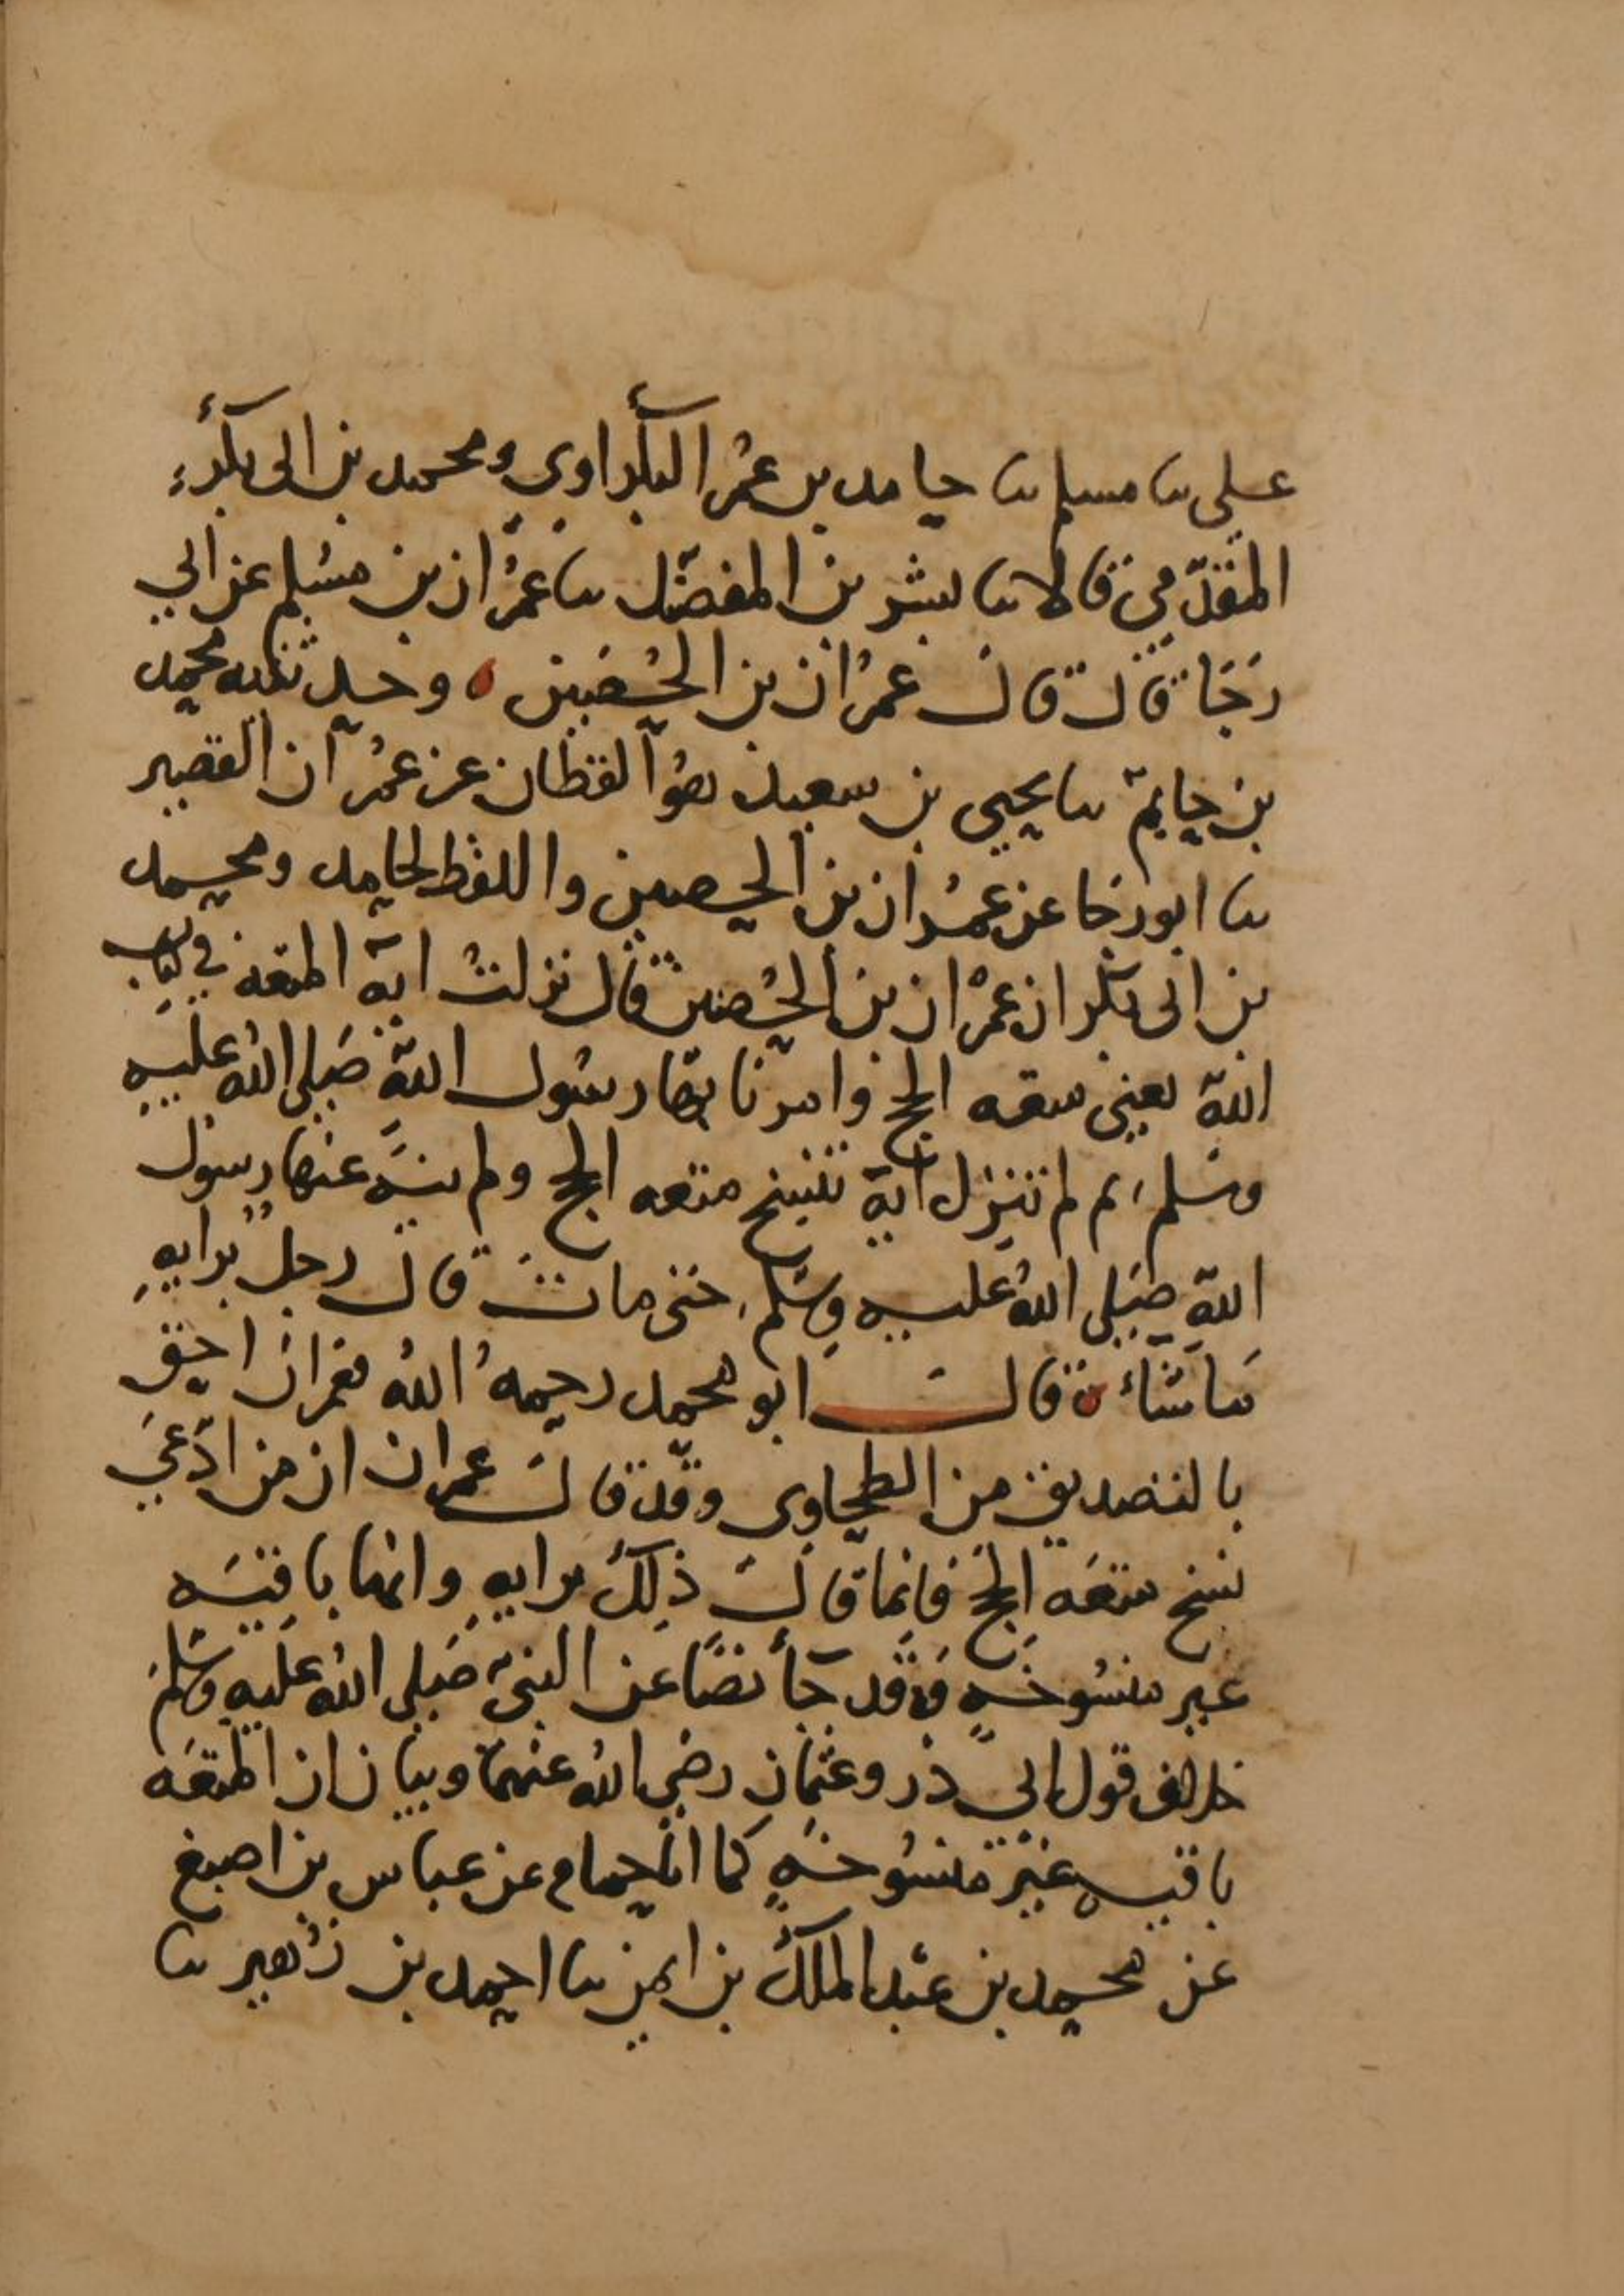 علي نا مسلم نا حامد بن عمر البكراوي ومحمد بن ابى بكر
المقدّمي قالا نا بشر بن المفضّل نا عمران بن مسلم عن ابي
رجا قال قال عمران بن الحُصَين ه وحدثنيه محمد
بن حاتم نا يحيى بن سعيد هو القطان عن عمران القصير
نا ابو رجا عن عمران بن الحصين واللفظ لحامد ومحمد
بن ابى بكر ان عمران بن الحُصين قال نزلت اية المتعه في كتاب
الله يعني متعه الحج وامرنا بها رسول الله صَلى الله عليه
وسَلم ثم لم تنزل اية تنسخ متعه الحج ولم ينه عنها رسول
اللهِ صَلى اللهُ عليه وسَلم حتى مات قال رجل برايهِ
ماشاء ه قال ابو محمد رحمهُ اللهُ فعمران احق
بالتصديق من الطحاوى وقد قال عمران ان من ادّعى
نسخ متعَه الحج فانما قال ذلك برايهِ وانها باقيَه
غير منسُوخهٍ وقد جأ نصًا عن النبى صَلى الله عليه وسَلم
خلاف قول ابي ذر وعثمان رضي الله عنهما وبيان ان المتعَه
باقيه غير منسُوخهٍ كما انا حمام عن عباس بن اصبغ
عن محمد بن عبد الملك بن ايمن نا احمد بن زُهير نا